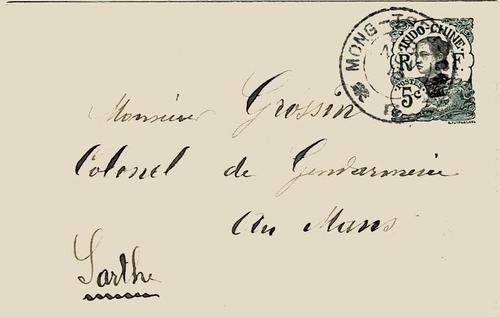 MONG-TS
INDO-CHINE
R F
POSTES
5c
Monsieur Grossin
Colonel de Gendarmerie
Au Mans
Sarthe